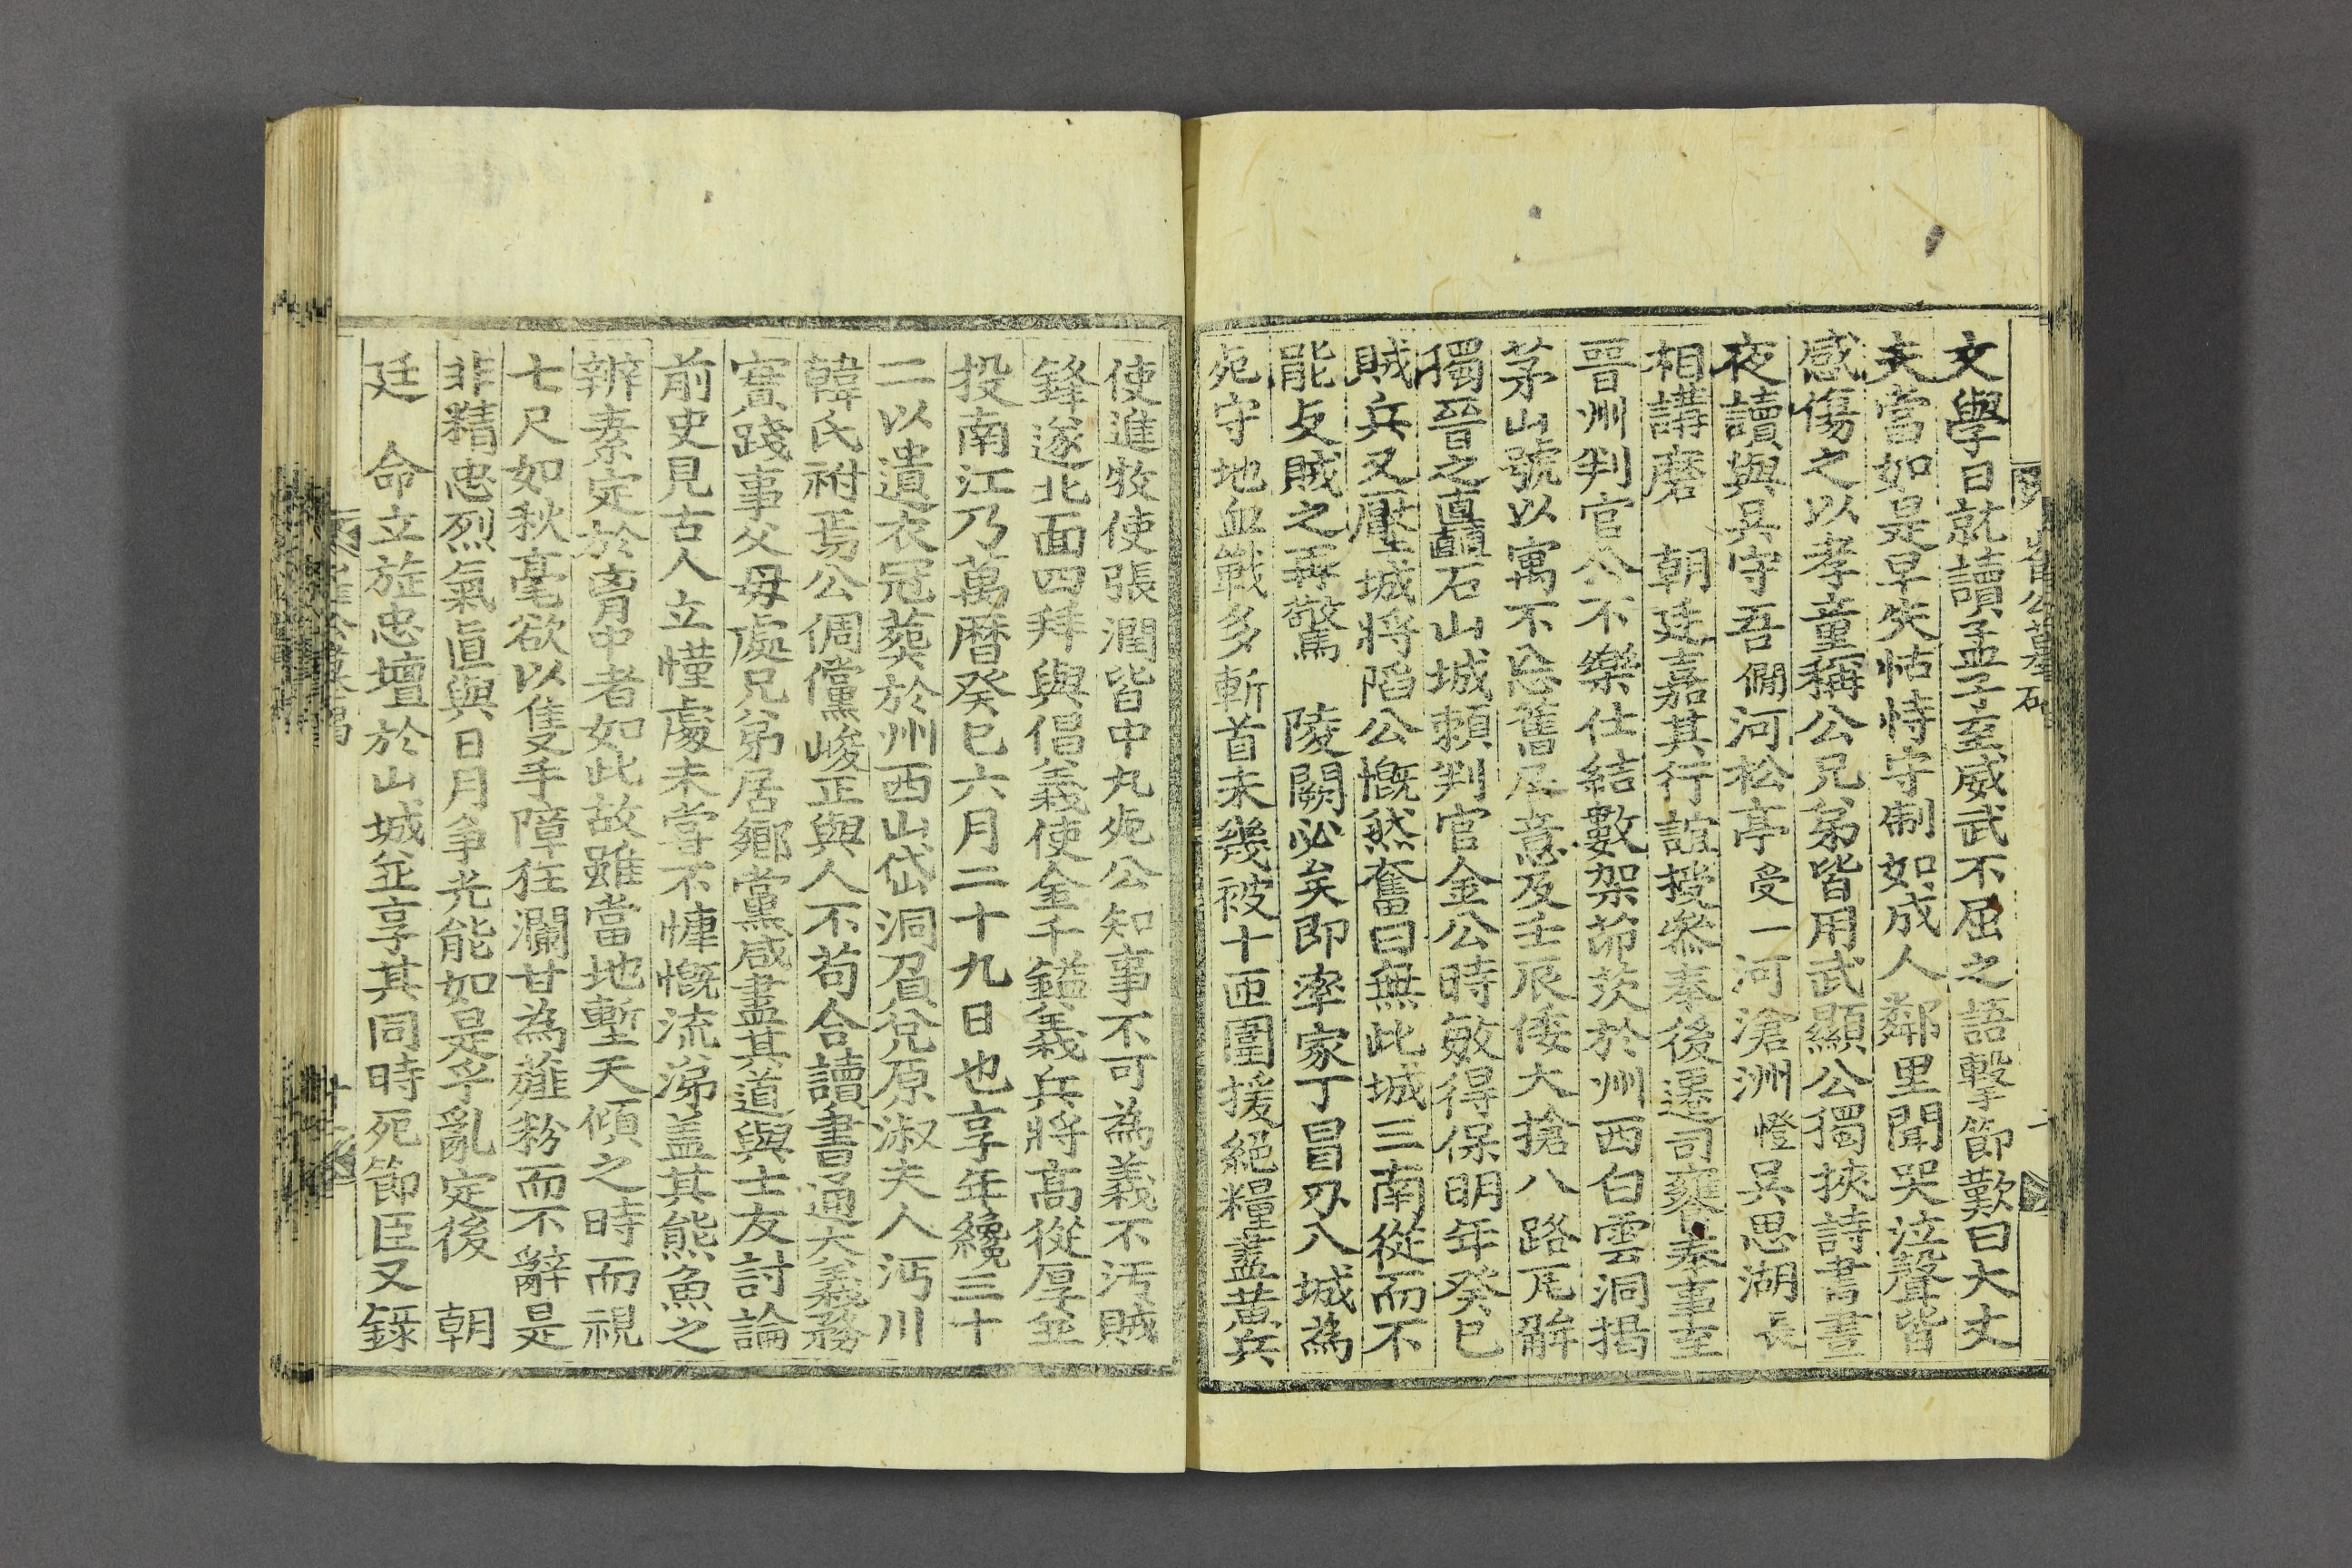 文學日就讀孟子至威武不屈之語擊節歎曰大丈
夫當如是早失怙恃守制如成人鄰里聞哭泣聲皆
感傷之以孝童稱公兄弟皆用武顯公獨挾詩書晝
夜讀與吳守吾僴河松亭受一河滄洲憕吳思湖長
相講磨 朝廷嘉其行誼授參奉後遷司饔奉事至
晉州判官公不樂仕結數架茆茨於州西白雲洞揭
茅山號以寓不忘舊居意及壬辰倭大搶八路瓦解
獨晉之直顛石山城賴判官金公時敏得保明年癸巳
賊兵又壓城將陷公慨然奮曰無此城三南從而不
能反賊之再驚 陵闕必矣即率家丁冒刃入城為
死守地血戰多斬首未幾被十匝圍援絕糧盡黃兵
使進牧使張潤皆中丸死公知事不可為義不汚賊
鋒遂北面四拜與倡義使金千鎰義兵將高從厚並
投南江乃萬曆癸巳六月二十九日也享年纔三十
二以遺衣冠葬於州西山岱洞負兌原淑夫人沔川
韓氏祔焉公倜儻峻正與人不苟合讀書通大義務
實踐事父母處兄弟居鄉黨咸盡其道與士友討論
前史見古人立慬處未嘗不慷慨流涕盖其熊魚之
辨素定於胷中者如此故雖當地塹天傾之時而視
七尺如秋毫欲以隻手障狂瀾甘為虀粉而不辭是
非精忠烈氣直與日月爭光能如是乎亂定後 朝
廷 命立旌忠壇於山城並享其同時死節臣又錄